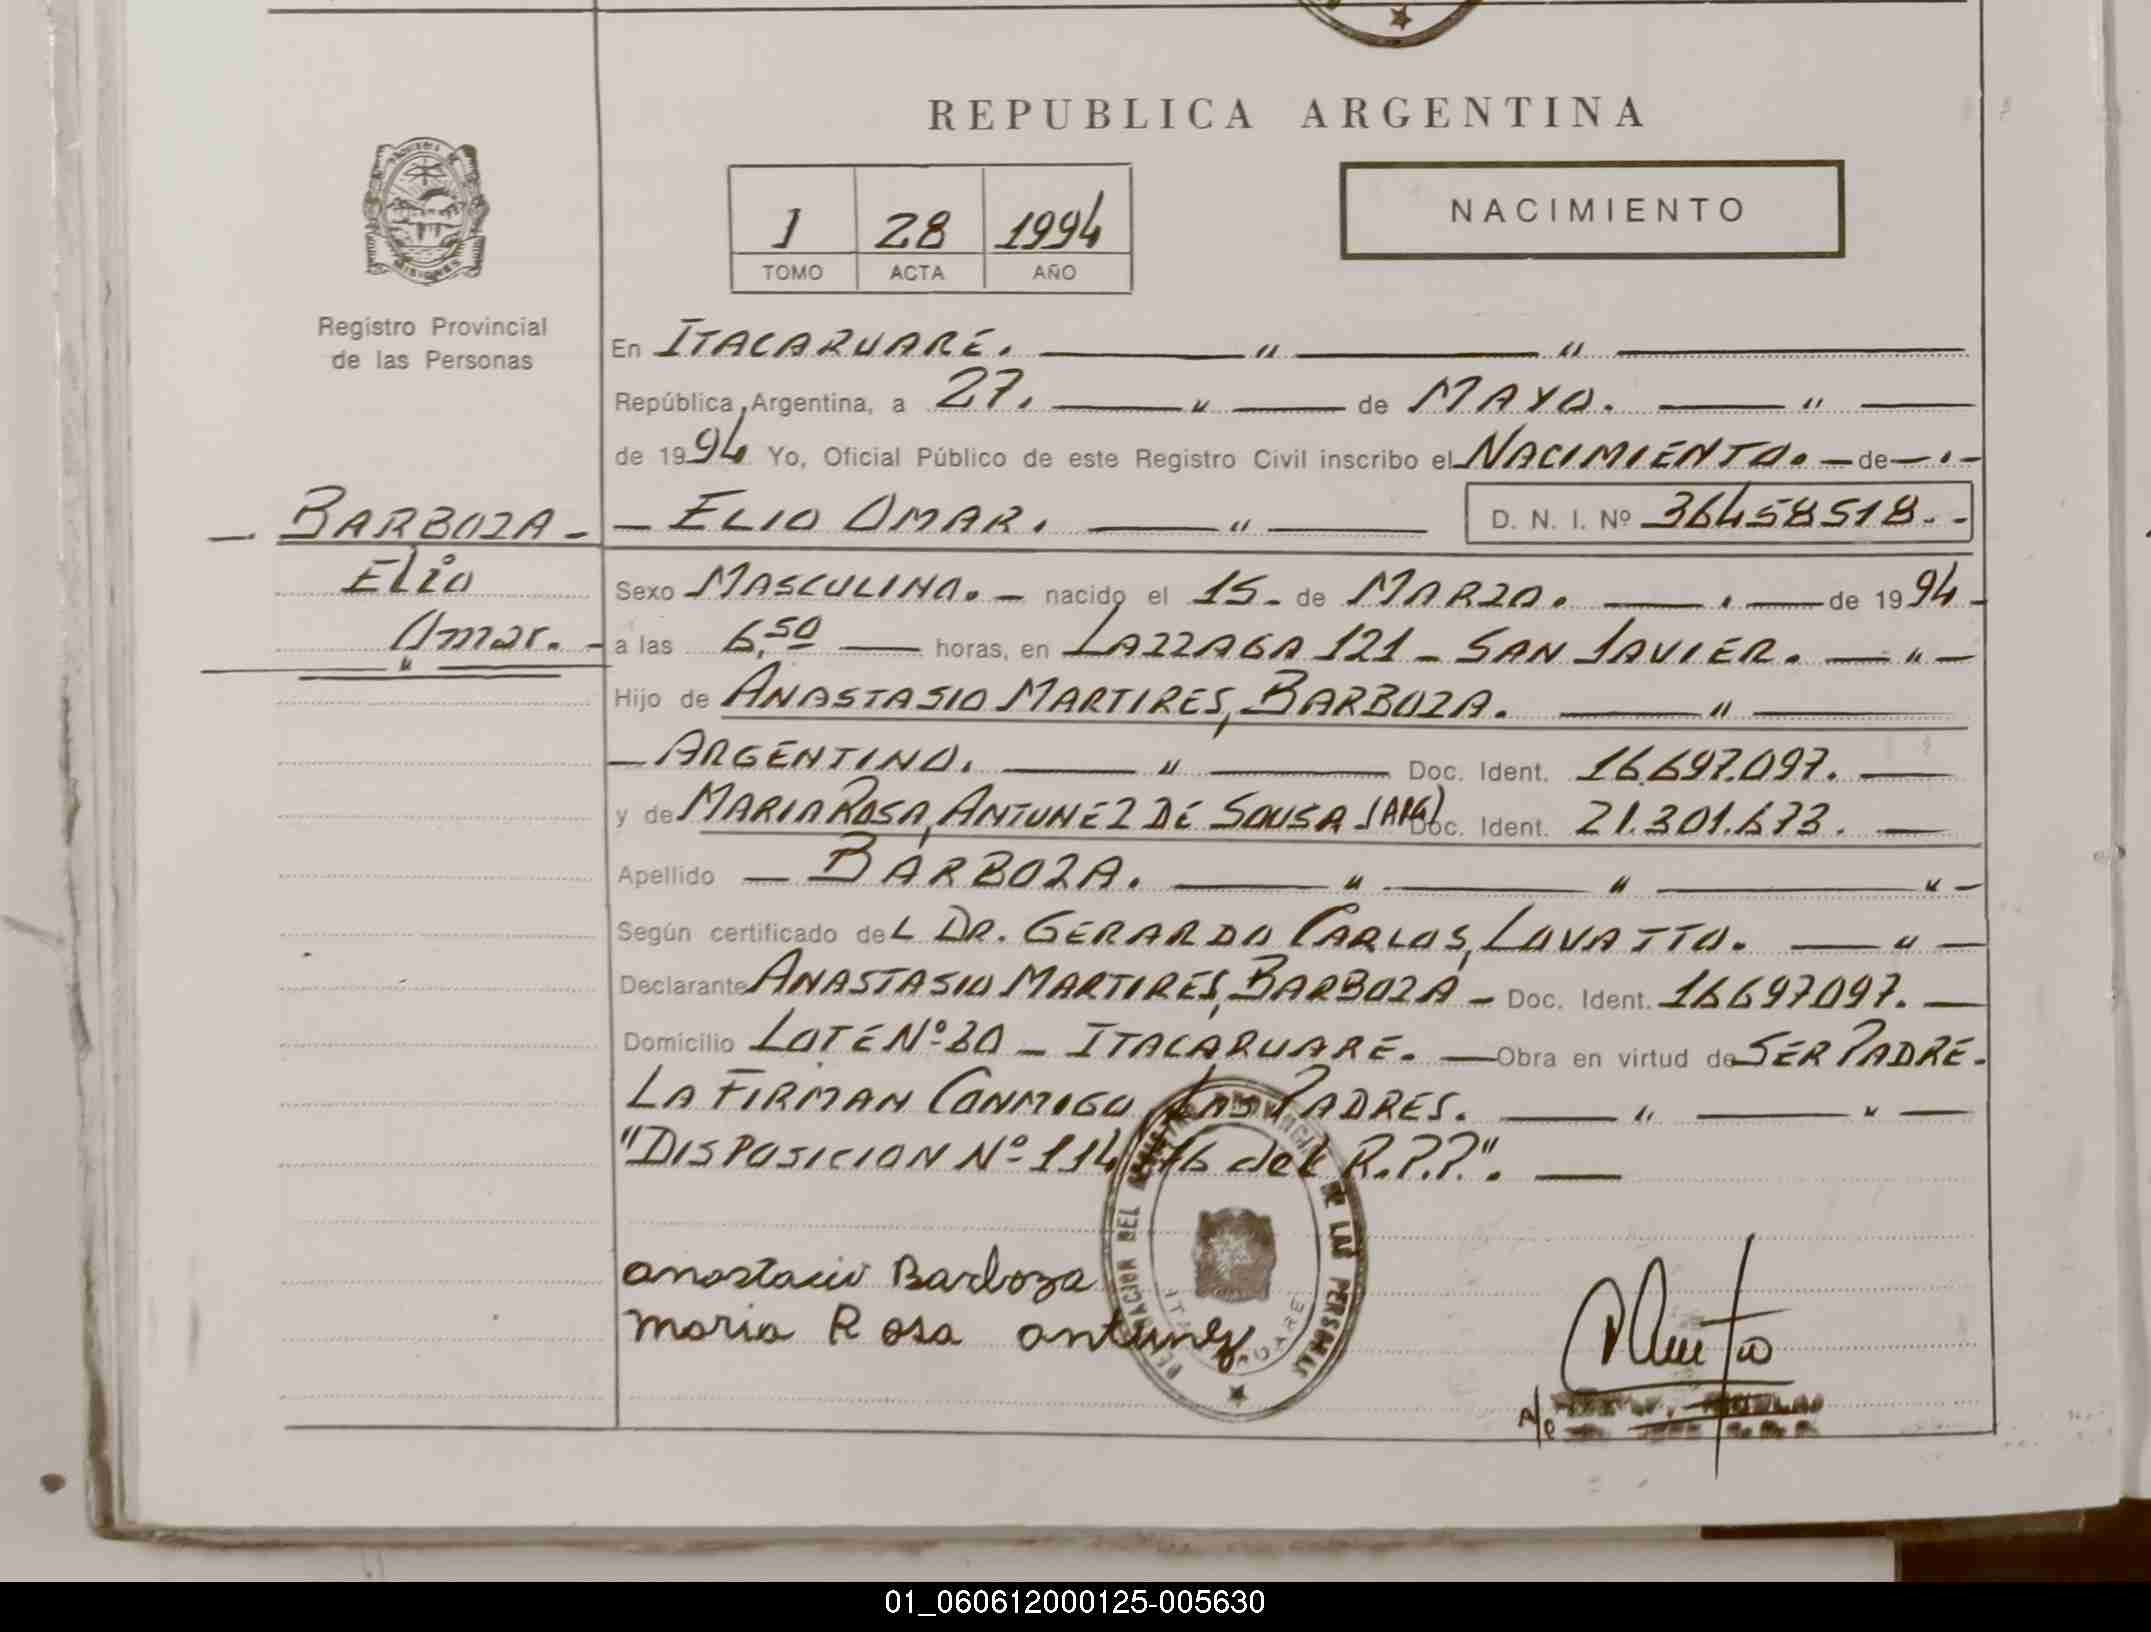 REPUBLICA ARGENTINA
NACIMIENTO
1 28 1994
TOMO ACTA AÑO
Registro Provincial
de las Personas
En ITACARUARE. — " — " —
República Argentina, a 27. — " — de MAYO. — " —
de 1994 Yo, Oficial Público de este Registro Civil inscribo el NACIMIENTO. — de — . —
— BARBOZA —
Elio
Omar. —
— ELIO OMAR. — " — D. N. I. Nº 36458518. -
Sexo MASCULINO. — nacido el 15 - de MARZO. — . — de 1994 -
a las 6,50 — horas, en LAZZAGA 121 - SAN JAVIER. — " —
Hijo de ANASTASIO MARTIRES, BARBOZA. — " —
— ARGENTINO. — " — Doc. Ident. 16.697.097. —
y de MARIA ROSA, ANTUNEZ DE SOUSA (ARG) Doc. Ident. 21.301.673. —
Apellido — BARBOZA. — " — " — " —
Según certificado deL DR. GERARDO CARLOS, LOVATTO. — " —
Declarante ANASTASIO MARTIRES, BARBOZA - Doc. Ident. 16697097. —
Domicilio LOTE Nº 30 - ITACARUARE. — Obra en virtud de SER PADRE.
LA FIRMAN CONMIGO LOS PADRES. — " — " —
"DISPOSICION Nº 114/76 del R.P.P.". —
anastacio Barboza
maria Rosa antunez
DELEGACION DEL REGISTRO PROVINCIAL DE LAS PERSONAS
ITACARUARE
A/c
01_060612000125-005630